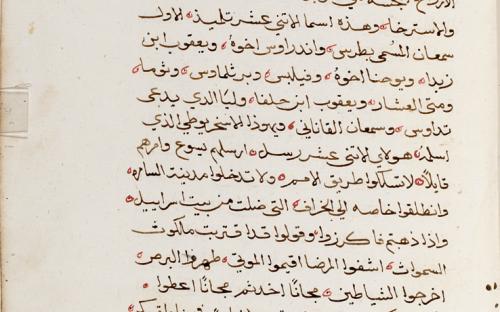 والاسترخا وهذه اسما الاثني عشر تلميذ الاول
سمعان المسمى بطرس واندراوس اخوة ويعقوب ابن
زبدا ويوحنا اخوة وفيلبس وبرثلماوس وتوما
ومتى العشار ويعقوب ابن حلفا ولبا الذي يدعى
تداوس وسمعان القاناني ويهوذا الاسخريوطي الذي
اسلمه هولاي الاثنى عشر رسل ارسلهم يسوع وامرهم
قايلاً لاتسلكوا طريق الامم ولا تدخلوا مدينة السامره
وانطلقوا خاصه الي الخراف التي ضلت من بيت اسراييل
واذا ذهبتم فاكرزوا وقولوا قد اقتربت مالكوث
السموات اشفوا المرضا اقيموا الموتى طهروا البرص
اخرجوا الشياطين مجانًا اخدتم مجانًا اعطوا